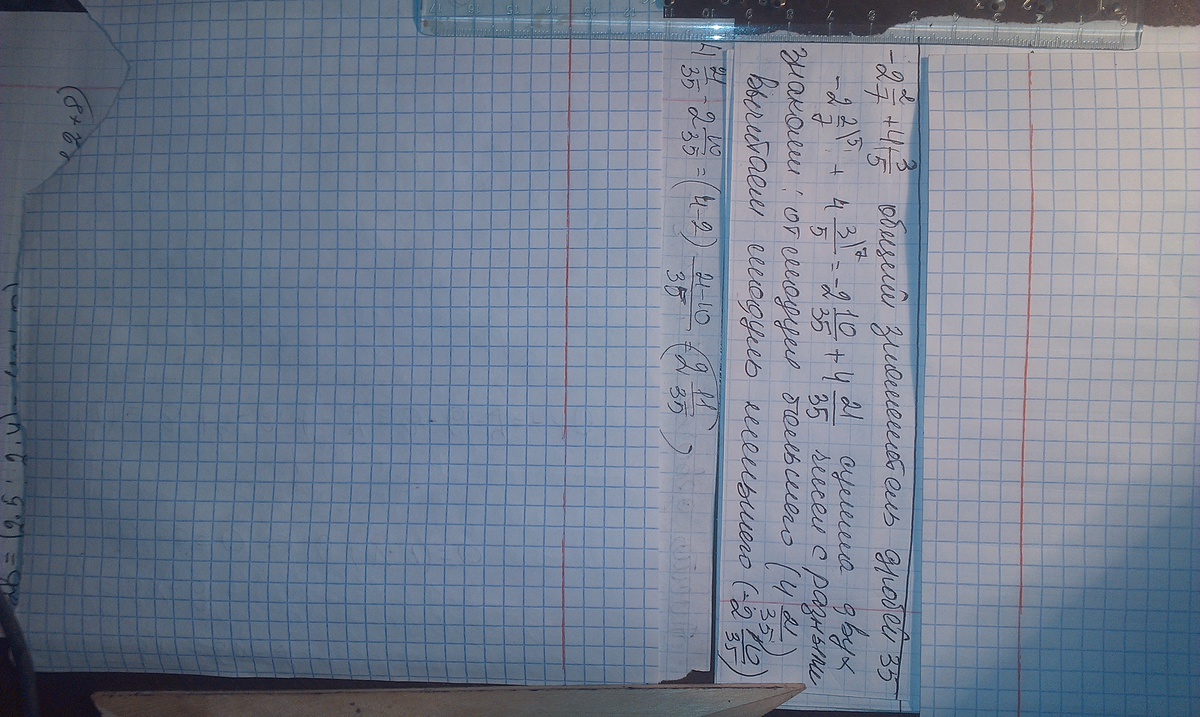 -2 2/7 + 4 3/5 общий знаменатель дробей 35
-2 2\5/7 + 4 3\7/5 = -2 10/35 + 4 21/35 сумма двух
чисел с разными
знаками: от модуля большего (4 21/35)
вычитаем модуль меньшего (-2 10/35)
4 21/35 - 2 10/35 = (4-2) 21-10/35 = (2 11/35)